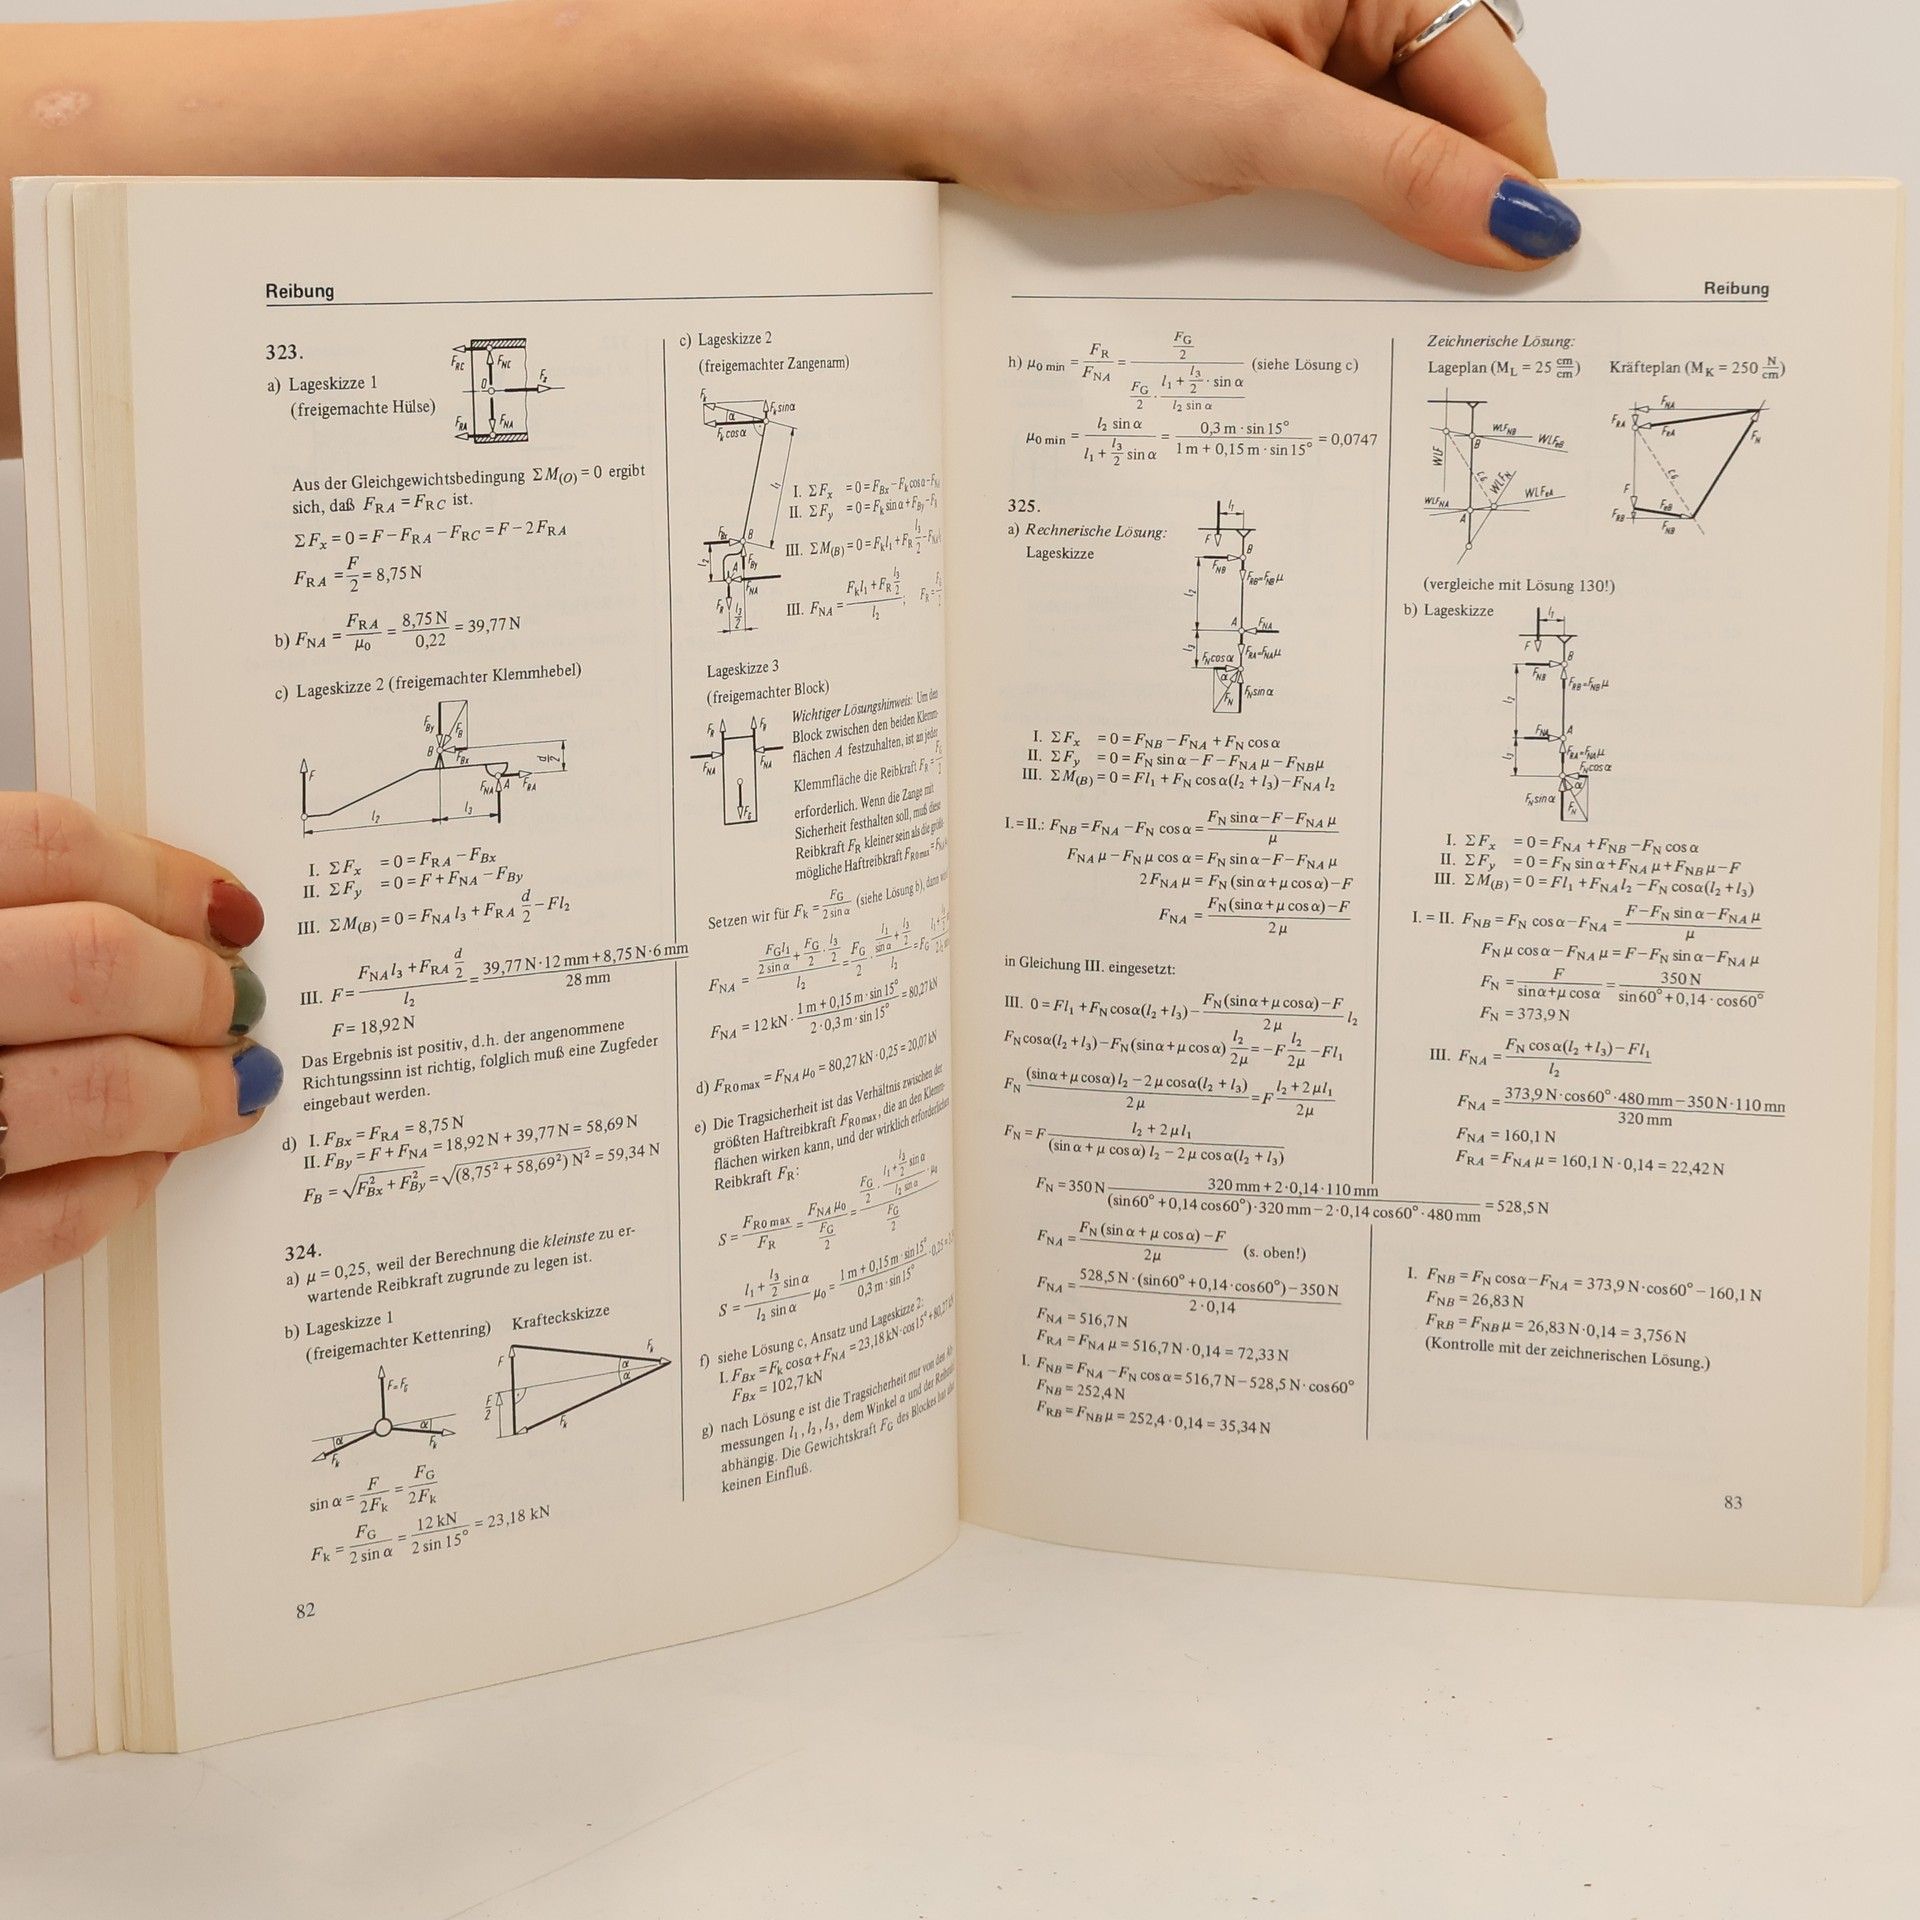 Reibung
323.
a) Lageskizze 1
(freigemachte Hülse)
F_RC F_NC
O F_s
F_RA F_NA
Aus der Gleichgewichtsbedingung ΣM(O) = 0 ergibt
sich, daß F_RA = F_RC ist.
ΣF_x = 0 = F − F_RA − F_RC = F − 2F_RA
F_RA = F/2 = 8,75 N
b) F_NA = F_RA/μ₀ = 8,75 N/0,22 = 39,77 N
c) Lageskizze 2 (freigemachter Klemmhebel)
F_By F_B
B F_Bx d/2
F F_NA A F_RA
l₂ l₃
I. ΣF_x = 0 = F_RA − F_Bx
II. ΣF_y = 0 = F + F_NA − F_By
III. ΣM(B) = 0 = F_NA l₃ + F_RA d/2 − Fl₂
III. F = (F_NA l₃ + F_RA d/2)/l₂ = (39,77 N·12 mm + 8,75 N·6 mm)/28 mm
F = 18,92 N
Das Ergebnis ist positiv, d.h. der angenommene
Richtungssinn ist richtig, folglich muß eine Zugfeder
eingebaut werden.
d) I. F_Bx = F_RA = 8,75 N
II. F_By = F + F_NA = 18,92 N + 39,77 N = 58,69 N
F_B = √(F²_Bx + F²_By) = √((8,75² + 58,69²) N²) = 59,34 N
324.
a) μ = 0,25, weil der Berechnung die kleinste zu er-
wartende Reibkraft zugrunde zu legen ist.
b) Lageskizze 1 Krafteckskizze
(freigemachter Kettenring)
F=F_G α α F_k F_k
F F/2 α α F_k F_k
sin α = F/2F_k = F_G/2F_k
F_k = F_G/(2 sin α) = 12 kN/(2 sin 15°) = 23,18 kN
82
c) Lageskizze 2
(freigemachter Zangenarm)
F_k α F_k sinα
F_k cosα
l₁
F_Bx B
l₂ A F_By
F_NA
F_R l₃/2
I. ΣF_x = 0 = F_Bx − F_k cosα −
II. ΣF_y = 0 = F_k sinα + F_By −
III. ΣM(B) = 0 = F_k l₁ + F_R l₃/2 −
III. F_NA = (F_k l₁ + F_R l₃/2)/l₂; F_R =
Lageskizze 3
(freigemachter Block)
F_R F_R
F_NA F_NA
F_G
Wichtiger Lösungshinweis: Um den
Block zwischen den beiden Klemm-
flächen A festzuhalten, ist an jeder
Klemmfläche die Reibkraft F_R =
erforderlich. Wenn die Zange mit
Sicherheit festhalten soll, muß diese
Reibkraft F_R kleiner sein als die
mögliche Haftreibkraft F_R0max =
Setzen wir für F_k = F_G/(2 sin α) (siehe Lösung b), dann
F_NA = (F_G l₁/(2 sin α) + F_G/2 · l₃/2)/l₂ = F_G/2 · (l₁/sin α + l₃/2)/l₂ = F_G
F_NA = 12 kN · (1 m + 0,15 m · sin 15°)/(2 · 0,3 m · sin 15°) = 80,27 kN
d) F_R0max = F_NA μ₀ = 80,27 kN · 0,25 = 20,07 kN
e) Die Tragsicherheit ist das Verhältnis zwischen der
größten Haftreibkraft F_R0max, die an den Klemm-
flächen wirken kann, und der wirklich erforderlichen
Reibkraft F_R:
S = F_R0max/F_R = F_NA μ₀/(F_G/2) = (F_G/2 · (l₁ + l₃/2 sin α)/(l₂ sin α) · μ₀)/(F_G/2)
S = (l₁ + l₃/2 sin α)/(l₂ sin α) μ₀ = (1 m + 0,15 m · sin 15°)/(0,3 m · sin 15°) · 0,25 =
f) siehe Lösung c, Ansatz und Lageskizze 2:
I. F_Bx = F_k cosα + F_NA = 23,18 kN · cos 15° + 80,27 kN
F_Bx = 102,7 kN
g) nach Lösung e ist die Tragsicherheit nur von den Ab-
messungen l₁, l₂, l₃, dem Winkel α und der
abhängig. Die Gewichtskraft F_G des Blockes hat
keinen Einfluß.
Reibung
h) μ₀ min = F_R/F_NA = (F_G/2)/(F_G/2 · (l₁ + l₃/2 · sin α)/(l₂ sin α)) (siehe Lösung c)
μ₀ min = l₂ sin α/(l₁ + l₃/2 sin α) = 0,3 m · sin 15°/(1 m + 0,15 m · sin 15°) = 0,0747
325.
a) Rechnerische Lösung:
Lageskizze
l₁
F B
F_NB
F_RB=F_NB μ
l₂
A F_NA
l₃ F_RA=F_NA μ
F_N cosα
α F_N F_N sinα
I. ΣF_x = 0 = F_NB − F_NA + F_N cos α
II. ΣF_y = 0 = F_N sin α − F − F_NA μ − F_NB μ
III. ΣM(B) = 0 = Fl₁ + F_N cos α(l₂ + l₃) − F_NA l₂
I. = II.: F_NB = F_NA − F_N cos α = (F_N sin α − F − F_NA μ)/μ
F_NA μ − F_N μ cos α = F_N sin α − F − F_NA μ
2F_NA μ = F_N (sin α + μ cos α) − F
F_NA = (F_N (sin α + μ cos α) − F)/2μ
in Gleichung III. eingesetzt:
III. 0 = Fl₁ + F_N cosα(l₂ + l₃) − (F_N (sinα + μ cosα) − F)/2μ l₂
F_N cosα(l₂ + l₃) − F_N (sinα + μ cosα) l₂/2μ = −F l₂/2μ − Fl₁
F_N ((sinα + μ cosα) l₂ − 2μ cosα(l₂ + l₃))/2μ = F (l₂ + 2μl₁)/2μ
F_N = F (l₂ + 2μl₁)/((sin α + μ cos α) l₂ − 2μ cos α(l₂ + l₃))
F_N = 350 N (320 mm + 2·0,14·110 mm)/((sin60° + 0,14 cos60°)·320 mm − 2·0,14 cos60°·480 mm) = 528,5 N
F_NA = (F_N (sin α + μ cos α) − F)/2μ (s. oben!)
F_NA = (528,5 N·(sin60° + 0,14·cos60°) − 350 N)/(2·0,14)
F_NA = 516,7 N
F_RA = F_NA μ = 516,7 N · 0,14 = 72,33 N
I. F_NB = F_NA − F_N cos α = 516,7 N − 528,5 N · cos60°
F_NB = 252,4 N
F_RB = F_NB μ = 252,4 · 0,14 = 35,34 N
Zeichnerische Lösung:
Lageplan (M_L = 25 cm/cm) Kräfteplan (M_K = 250 N/cm)
WLF WLF_NB WLF_RB
B
WLF_N
WLF_NA WLF_RA
A
F_NA F_RA F_RA F_N
F F_RB F_RB F_NB
(vergleiche mit Lösung 130!)
b) Lageskizze
l₁
F B
F_NB
F_RB=F_NB μ
l₂
F_NA A
l₃ F_RA=F_NA μ
F_N cosα
F_N sinα α F_N
I. ΣF_x = 0 = F_NA + F_NB − F_N cos α
II. ΣF_y = 0 = F_N sin α + F_NA μ + F_NB μ − F
III. ΣM(B) = 0 = Fl₁ + F_NA l₂ − F_N cosα(l₂ + l₃)
I. = II. F_NB = F_N cos α − F_NA = (F − F_N sin α − F_NA μ)/μ
F_N μ cos α − F_NA μ = F − F_N sin α − F_NA μ
F_N = F/(sin α + μ cos α) = 350 N/(sin60° + 0,14 · cos60°)
F_N = 373,9 N
III. F_NA = (F_N cos α(l₂ + l₃) − Fl₁)/l₂
F_NA = (373,9 N·cos60°·480 mm − 350 N·110 mm)/320 mm
F_NA = 160,1 N
F_RA = F_NA μ = 160,1 N · 0,14 = 22,42 N
I. F_NB = F_N cosα − F_NA = 373,9 N·cos60° − 160,1 N
F_NB = 26,83 N
F_RB = F_NB μ = 26,83 N·0,14 = 3,756 N
(Kontrolle mit der zeichnerischen Lösung.)
83